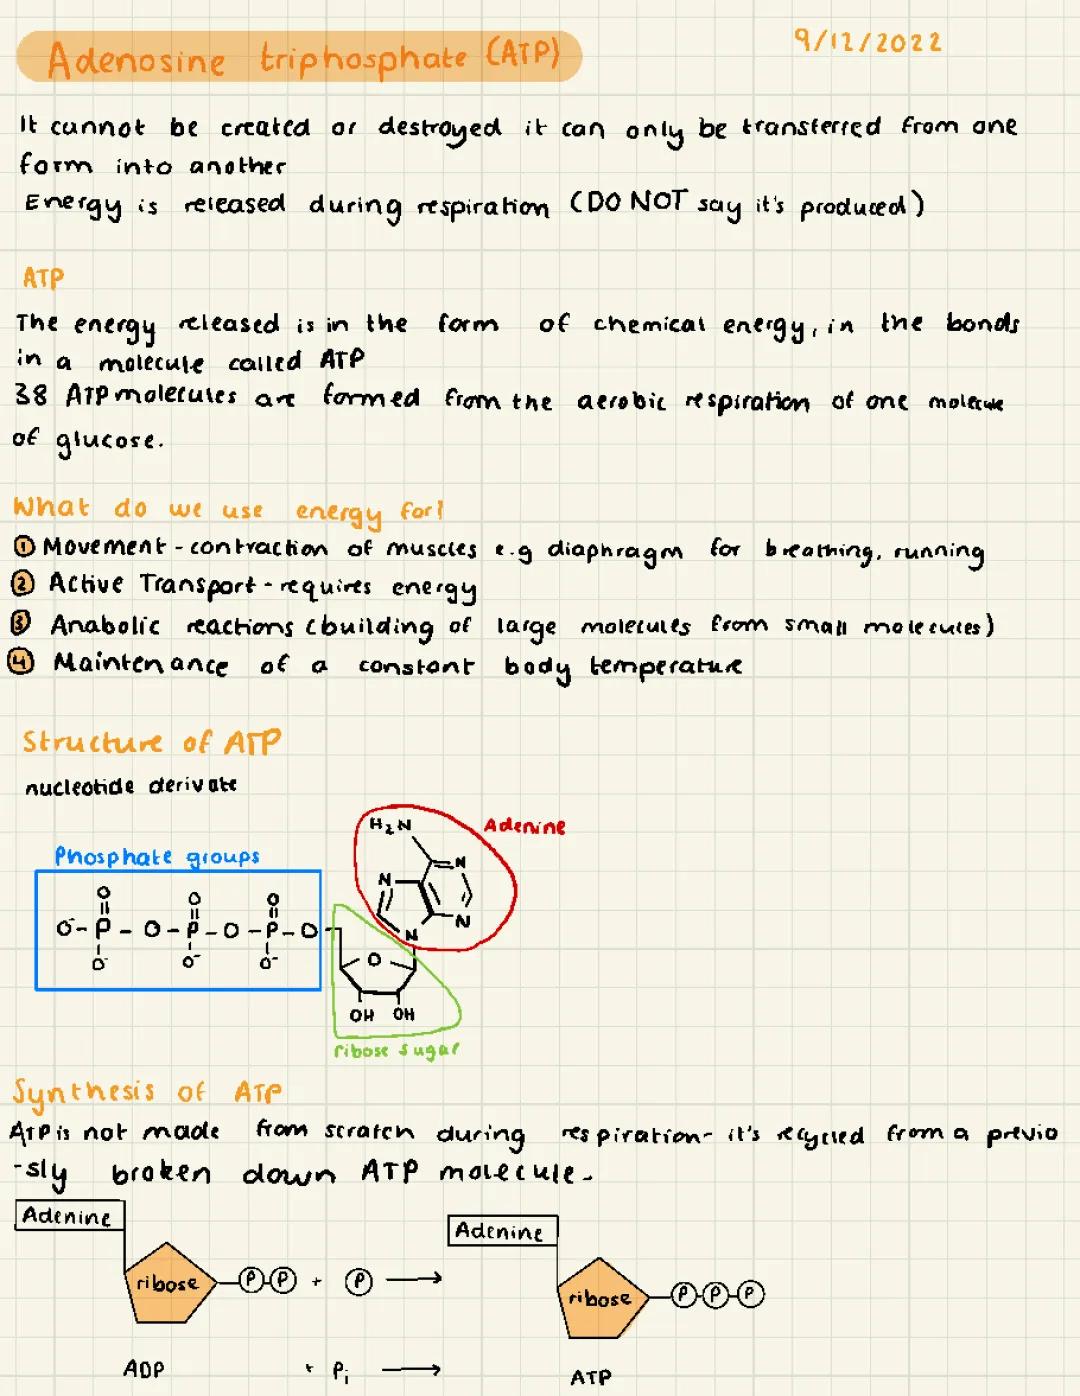 Adenosine triphosphate (ATP)
9/12/2022
It cannot be created or destroyed it can only be transferred from one
form into another
Energy is released during respiration (DO NOT say it's produced)
ATP
The energy released is in the form of chemical energy, in the bonds
in a molecule called ATP
38 ATP molecules are formed from the aerobic respiration of one molecule
of glucose.
What do we use energy for?
① Movement - contraction of muscles e.g diaphragm for breathing, running
② Active Transport - requires energy
③ Anabolic reactions (building of large molecules from small molecules)
④ Maintenance of a constant body temperature
Structure of ATP
nucleotide derivate
H₂N
Adenine
Phosphate groups
N
N
N
N
O
O
O
O⁻-P-O-P-O-P-O
O⁻
O⁻
O⁻
O
OH OH
ribose sugar
Synthesis of ATP
ATP is not made from scratch during respiration- it's recycled from a previo
-sly broken down ATP molecule.
Adenine
Adenine
ribose P-P + P →
ribose P-P-P
ADP + Pi →
ATP